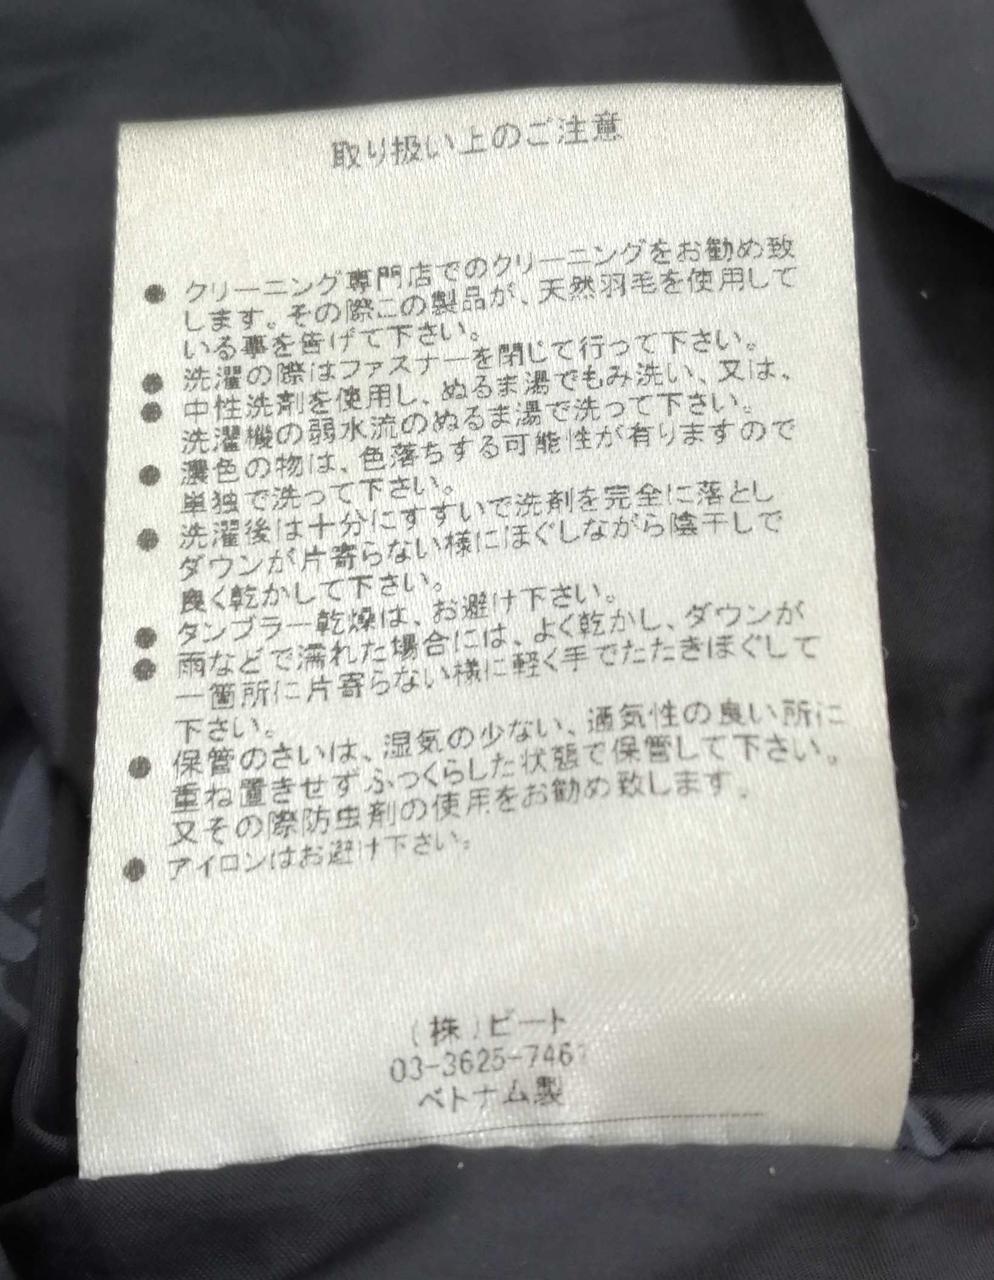 取り扱い上のご注意
● クリーニング専門店でのクリーニングをお勧め致
します。その際この製品が、天然羽毛を使用して
いる事を告げて下さい。
● 洗濯の際はファスナーを閉じて行って下さい。
● 中性洗剤を使用し、ぬるま湯でもみ洗い、又は、
洗濯機の弱水流のぬるま湯で洗って下さい。
● 濃色の物は、色落ちする可能性が有りますので
単独で洗って下さい。
● 洗濯後は十分にすすいで洗剤を完全に落とし
ダウンが片寄らない様にほぐしながら陰干しで
良く乾かして下さい。
● タンブラー乾燥は、お避け下さい。
● 雨などで濡れた場合には、よく乾かし、ダウンが
一箇所に片寄らない様に軽く手でたたきほぐして
下さい。
● 保管のさいは、湿気の少ない、通気性の良い所に
重ね置きせずふっくらした状態で保管して下さい。
又その際防虫剤の使用をお勧め致します。
● アイロンはお避け下さい。
(株)ビート
03-3625-7461
ベトナム製